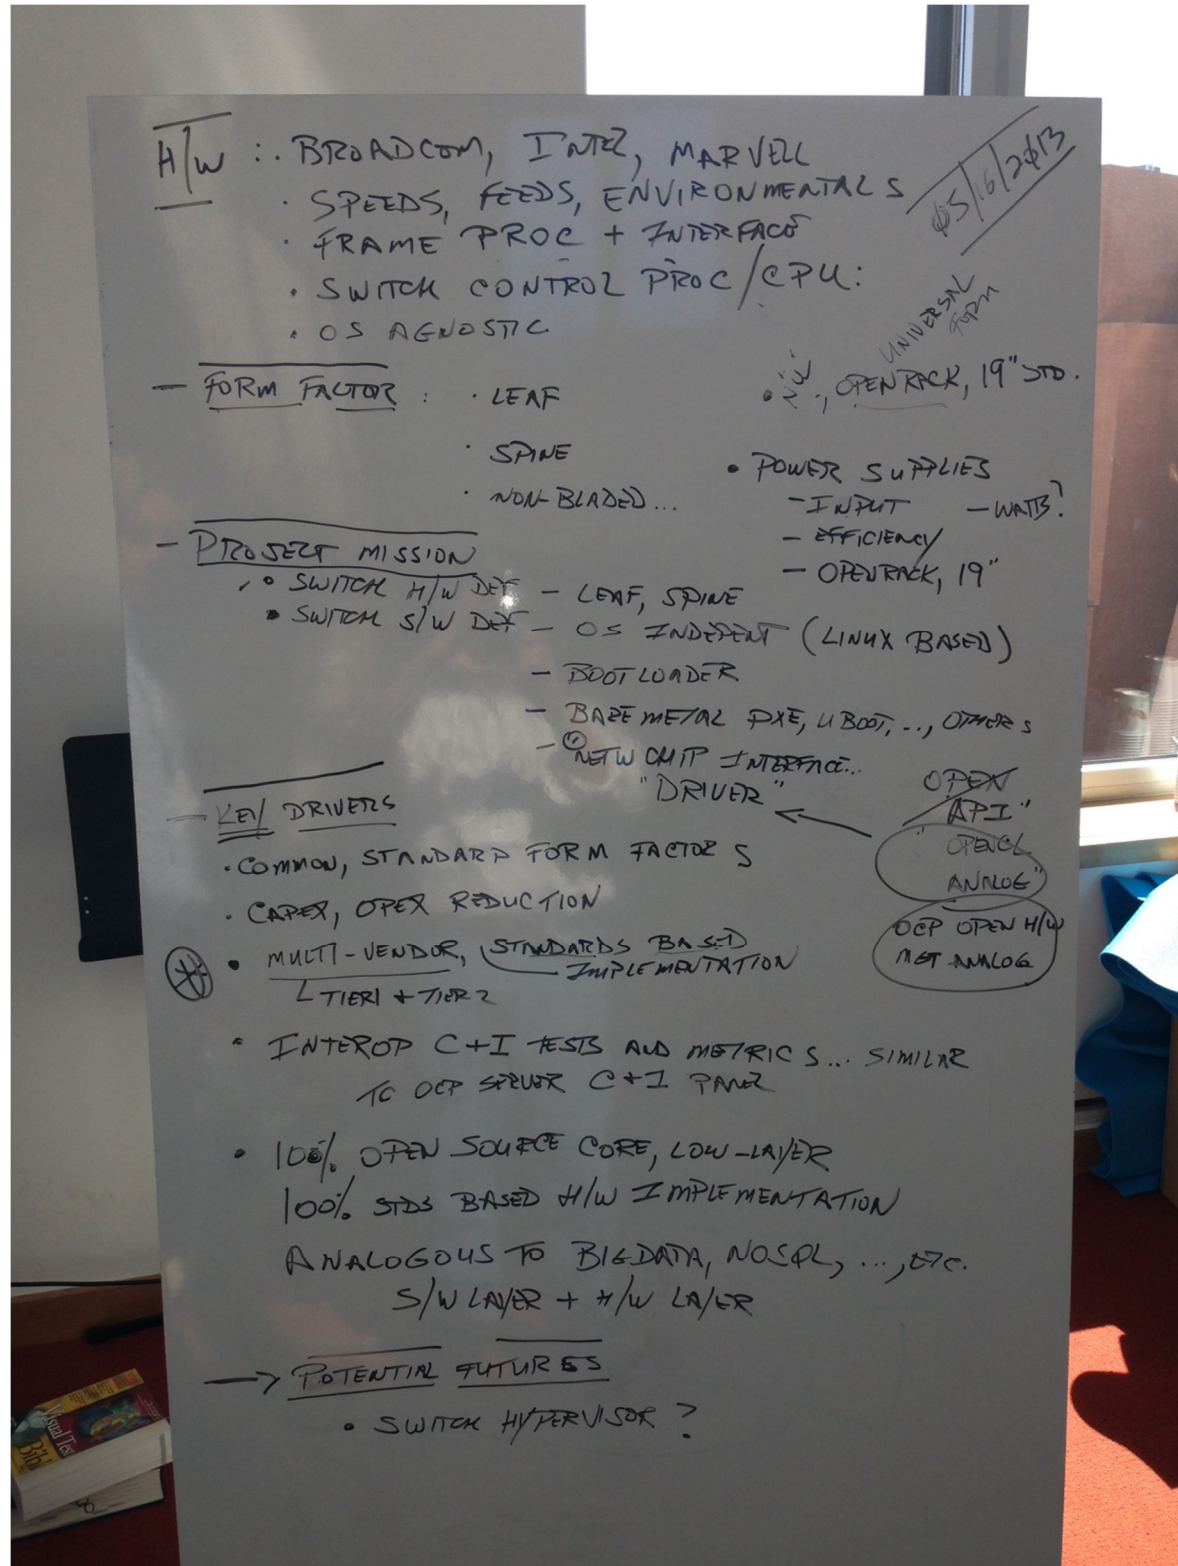 H/W : . BROADCOM, INTEL, MARVELL
Ø5/16/2Ø13
· SPEEDS, FEEDS, ENVIRONMENTALS
· FRAME PROC + INTERFACE
· SWITCH CONTROL PROC/CPU:
· OS AGNOSTIC
UNIVERSAL
FORM
— FORM FACTOR : · LEAF
• , OPENRACK, 19" STD.
· SPINE
· NON-BLADED...
• POWER SUPPLIES
- INPUT - WATTS?
- EFFICIENCY
- OPENRACK, 19"
- PROJECT MISSION
• SWITCH H/W DEF - LEAF, SPINE
• SWITCH S/W DEF - OS INDEPENT (LINUX BASED)
- BOOTLOADER
- BARE METAL PXE, U BOOT, .., OTHERS
- NETW CHIP INTERFACE...
"DRIVER"
OPEN
API"
"OPENCL
ANALOG"
OCP OPEN H/W
MGT ANALOG
- KEY DRIVERS
· COMMON, STANDARD FORM FACTORS
· CAPEX, OPEX REDUCTION
• MULTI-VENDOR, STANDARDS BASED
IMPLEMENTATION
TIER1 + TIER2
• INTEROP C+I TESTS AND METRICS... SIMILAR
TO OCP SERVER C+I PANEL
• 100% OPEN SOURCE CORE, LOW-LAYER
100% STDS BASED H/W IMPLEMENTATION
ANALOGOUS TO BIGDATA, NOSQL, ..., ETC.
S/W LAYER + H/W LAYER
→ POTENTIAL FUTURES
• SWITCH HYPERVISOR ?
Visual Test